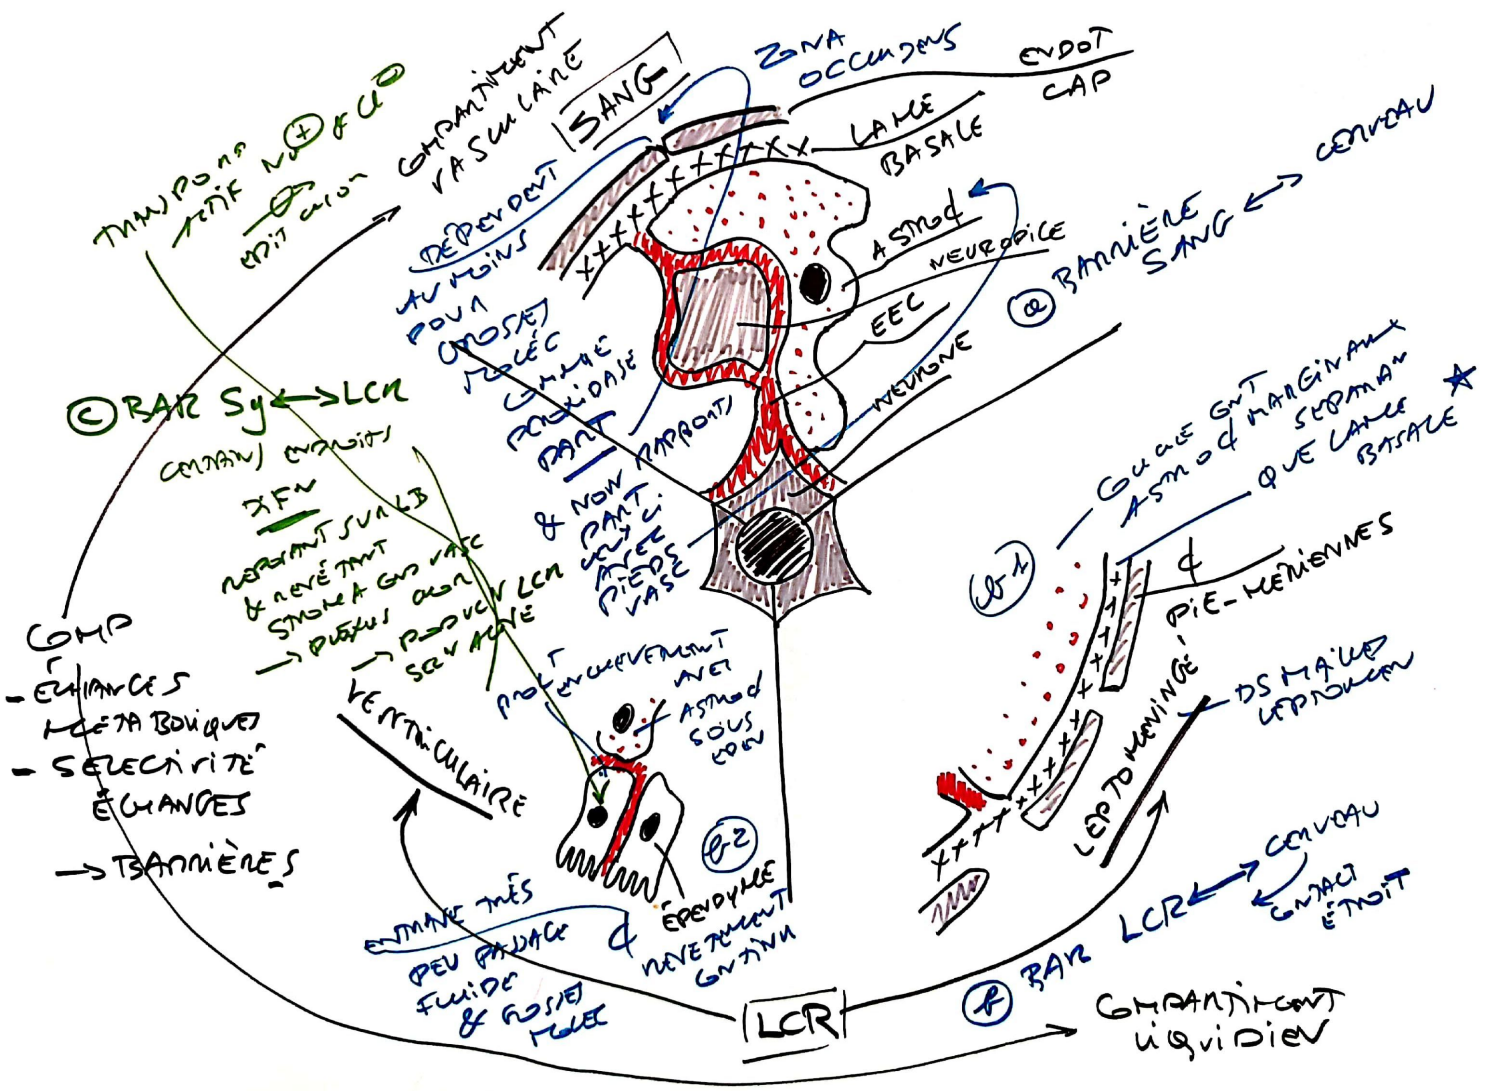 COMPARTIMENT
VASCULAIRE
SANG
ZONA
OCCLUDENS
ENDOT
CAP
LAME
BASALE
ASTROC
NEUROPILE
EEC
NEURONE
a BARRIÈRE
SANG ↔ CERVEAU
DÉPENDENT
AU MOINS
POUR
GROSSES
MOLÉC
COMME
PEROXIDASE
PART
& NON RAPPORTS
PART
AVEC
PIEDS
VASC
TRANSPORT
ACTIF Na + & Cl -
C BAR SG ↔ LCR
CERTAINS ENDROITS
REPOSANT SUR LB
& REVÊTANT
STROMA VASC
→ PLEXUS CHOR
→ PRODUCT LCR
COMP
- ÉCHANGES
MÉTABOLIQUES
- SÉLECTIVITÉ
ÉCHANGES
→ BARRIÈRES
VENTRICULAIRE
AVEC
ASTROC
SOUS
EPEN
b2
ÉPENDYME
REVETEMENT
CONTINU
ENTRAVE TRÈS
PEU PASSAGE
FLUIDE
& GROSSES
MOLEC
LCR
b1
COUCHE CONT
ASTROC MARGINAUX
SEPARAN
QUE LAME
BASALE
PIE-MÉRIENNES
LEPTOMENINGÉ
DS MAILLES
LEPTOMEN
b BAR LCR ↔ CERVEAU
CONTACT
ÉTROIT
COMPARTIMENT
LIQUIDIEN